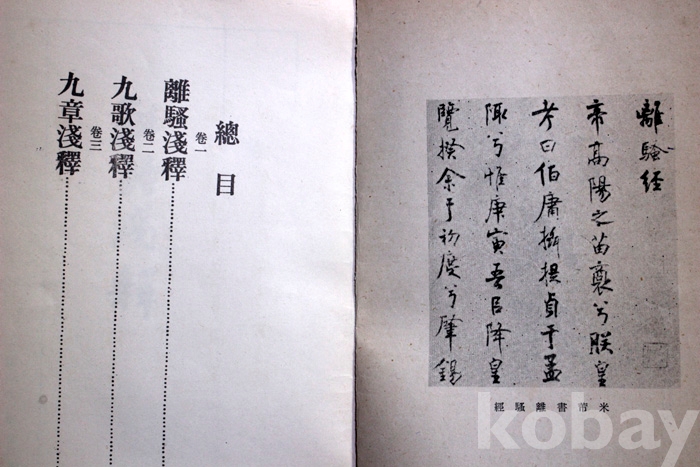 離騷経
帝高陽之苗裔兮朕皇
考曰伯庸攝提貞于孟
陬兮惟庚寅吾㠯降皇
覽揆余于初度兮肇錫
米芾書離騷經
總目
卷一
離騷淺釋
卷二
九歌淺釋
卷三
九章淺釋
kobay